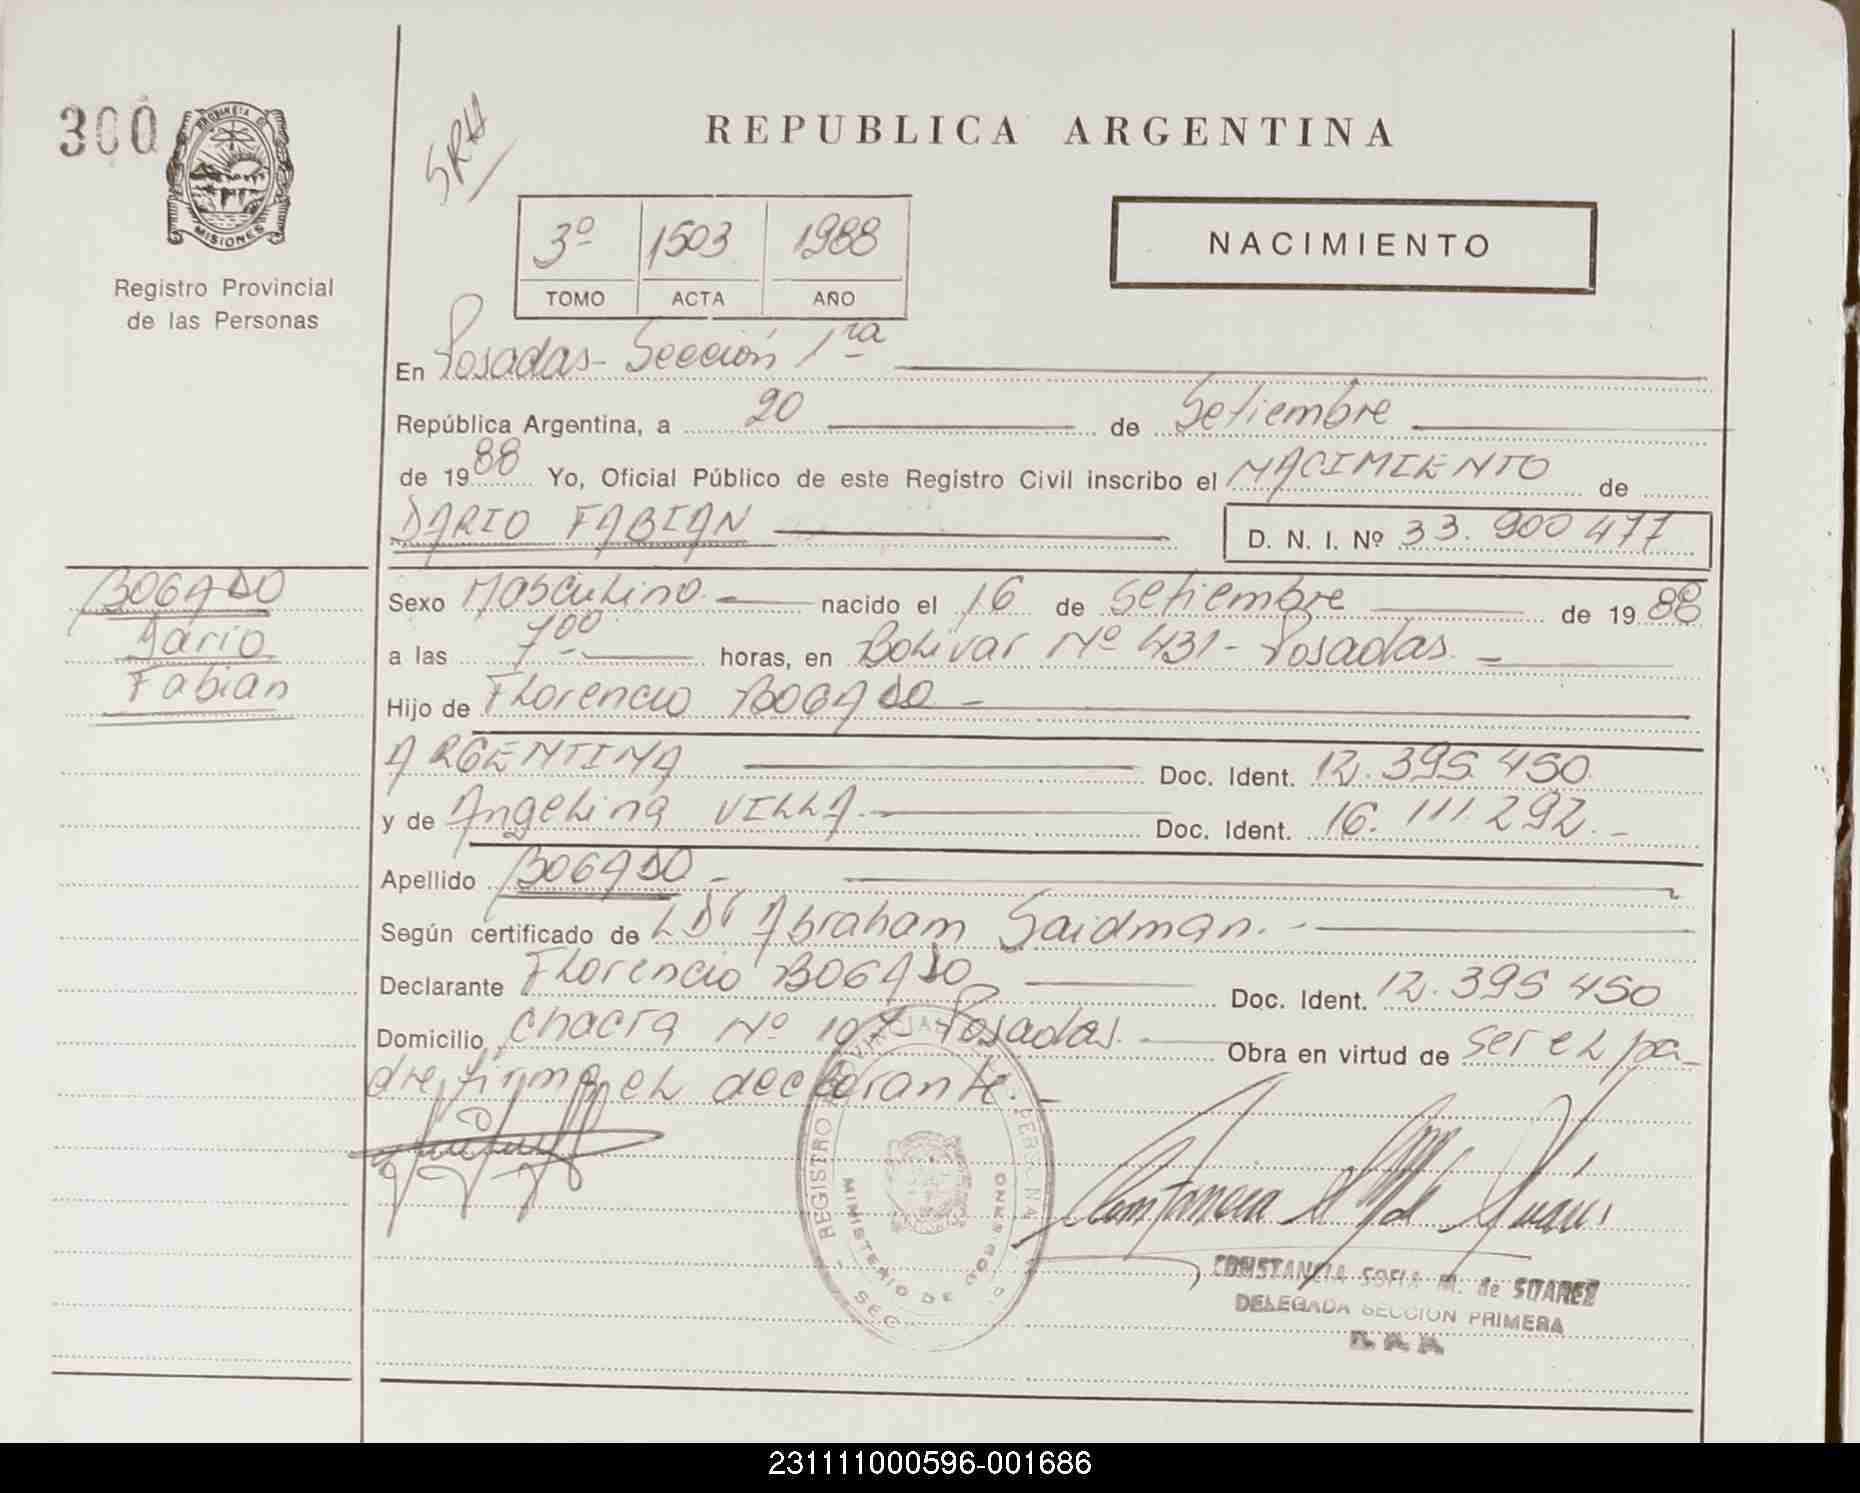 300
PROVINCIA D
MISIONES
Registro Provincial
de las Personas
SRH
REPUBLICA ARGENTINA
3º 1503 1988
TOMO ACTA AÑO
NACIMIENTO
En Posadas - Sección 1ra
República Argentina, a 20 de Setiembre
de 1988 Yo, Oficial Público de este Registro Civil inscribo el NACIMIENTO de
DARIO FABIAN D. N. I. Nº 33.900477
BOGADO
Dario
Fabian
Sexo Masculino.- nacido el 16 de Setiembre de 1988
a las 7 00 horas, en Bolivar Nº 431 - Posadas.-
Hijo de Florencio BOGADO -
ARGENTINA Doc. Ident. 12.395.450
y de Angelina VILLA.- Doc. Ident. 16.111.292.-
Apellido BOGADO -
Según certificado de LDr Abraham Saidman.-
Declarante Florencio BOGADO Doc. Ident. 12.395 450
Domicilio chacra Nº 107 Posadas.- Obra en virtud de ser el pa-
dre, firma el declarante.-
REGISTRO
MINISTERIO DE GOBIERNO
Constancia de Suárez
CONSTANCIA SOFIA M. de SUAREZ
DELEGADA SECCION PRIMERA
231111000596-001686